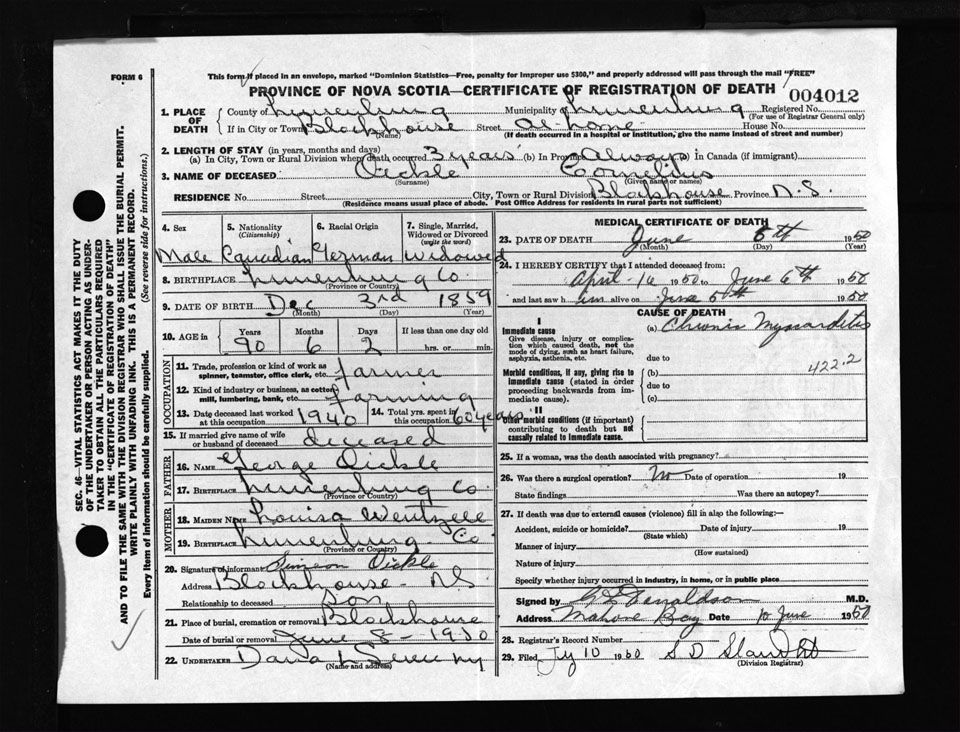 FORM 6
This form if placed in an envelope, marked "Dominion Statistics—Free, penalty for improper use $300," and properly addressed will pass through the mail "FREE"
PROVINCE OF NOVA SCOTIA—CERTIFICATE OF REGISTRATION OF DEATH
004012
1. PLACE OF DEATH
County of Lunenburg Municipality of Lunenburg Registered No.
(For use of Registrar General only)
If in City or Town Blockhouse Street At home House No.
(Name) (If death occurred in a hospital or institution, give the name instead of street and number)
2. LENGTH OF STAY (in years, months and days)
(a) In City, Town or Rural Division where death occurred 3 years (b) In Province Always In Canada (if immigrant)
3. NAME OF DECEASED Oickle Cornelius
(Surname) (Given name or names)
RESIDENCE No. Street City, Town or Rural Division Blockhouse Province N.S.
(Residence means usual place of abode. Post Office Address for residents in rural parts not sufficient)
4. Sex 5. Nationality (Citizenship) 6. Racial Origin 7. Single, Married, Widowed or Divorced (write the word)
Male Canadian German Widowed
8. BIRTHPLACE Lunenburg Co.
(Province or County)
9. DATE OF BIRTH Dec 3rd 1859
(Month) (Day) (Year)
10. AGE in Years Months Days If less than one day old
90 6 2 hrs. or min.
OCCUPATION
11. Trade, profession or kind of work as spinner, teamster, office clerk, etc. Farmer
12. Kind of industry or business, as cotton mill, lumbering, bank, etc. Farming
13. Date deceased last worked at this occupation 1940 14. Total yrs. spent in this occupation 60 years
15. If married give name of wife or husband of deceased deceased
FATHER
16. NAME George Oickle
17. BIRTHPLACE Lunenburg Co
(Province or County)
MOTHER
18. MAIDEN NAME Louisa Wentzell
19. BIRTHPLACE Lunenburg Co
(Province or County)
20. Signature of informant Simeon Oickle
Address Blockhouse N.S.
Relationship to deceased Son
21. Place of burial, cremation or removal Blockhouse
Date of burial or removal June 8 - 1950
22. UNDERTAKER Dana L
(Name and address)
MEDICAL CERTIFICATE OF DEATH
23. DATE OF DEATH June 5th 1950
(Month) (Day) (Year)
24. I HEREBY CERTIFY that I attended deceased from:
April 16 1950 to June 6th 1950
and last saw him alive on June 5th 1950
CAUSE OF DEATH
I
Immediate cause
Give disease, injury or complication which caused death, not the mode of dying, such as heart failure, asphyxia, asthenia, etc.
(a) Chronic Myocarditis
due to
422.2
Morbid conditions, if any, giving rise to immediate cause (stated in order proceeding backwards from immediate cause).
(b)
due to
(c)
II
Other morbid conditions (if important) contributing to death but not causally related to immediate cause.
25. If a woman, was the death associated with pregnancy?
26. Was there a surgical operation? No Date of operation 19
State findings Was there an autopsy?
27. If death was due to external causes (violence) fill in also the following:—
Accident, suicide or homicide? Date of injury 19
(State which)
Manner of injury
(How sustained)
Nature of injury
Specify whether injury occurred in industry, in home, or in public place
Signed by Donaldson M.D.
Address Mahone Bay Date 10 June 1950
28. Registrar's Record Number
29. Filed Jy 10 1950 S D
(Division Registrar)
SEC. 46—VITAL STATISTICS ACT MAKES IT THE DUTY
OF THE UNDERTAKER OR PERSON ACTING AS UNDER-
TAKER TO OBTAIN ALL THE PARTICULARS REQUIRED
IN THE "CERTIFICATE OF REGISTRATION OF DEATH"
AND TO FILE THE SAME WITH THE DIVISION REGISTRAR WHO SHALL ISSUE THE BURIAL PERMIT.
WRITE PLAINLY WITH UNFADING INK. THIS IS A PERMANENT RECORD.
Every item of information should be carefully supplied. (See reverse side for instructions.)